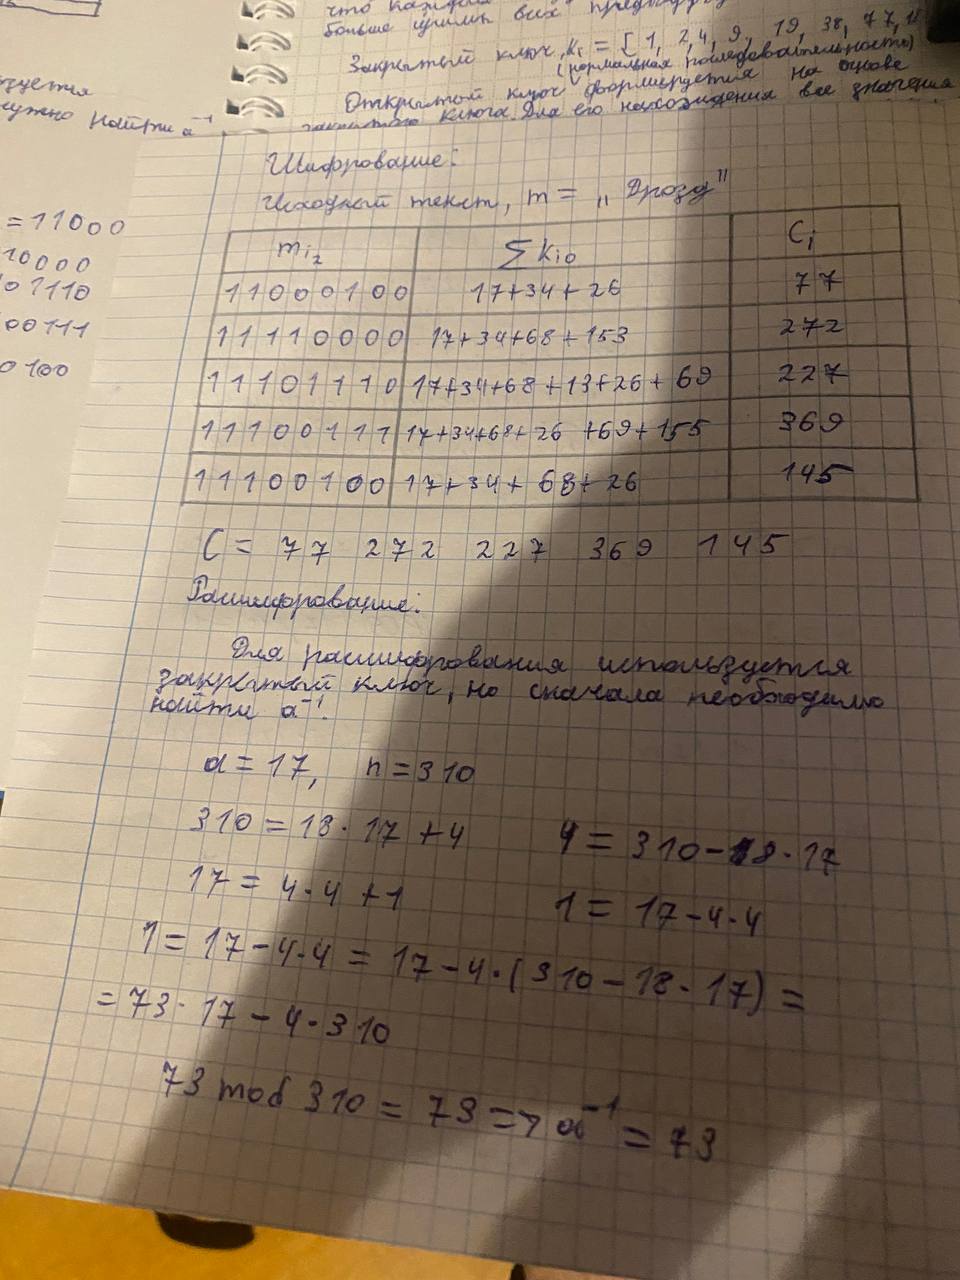 что каждый
больше суммы всех
Закрытый ключ, Ki = [ 1, 2, 4, 9, 19, 38, 77,
(нормальная последовательность)
Открытый ключ формируется на основе
закрытого ключа. Для его нахождения все значения
зуется
нужно найти a⁻¹
= 11000
10000
01110
00111
0100
Шифрование:
Исходный текст, m = „ Дрозд"
mi₂ ∑ Kio Ci
11000100 17+34+26 77
11110000 17+34+68+153 272
11101110 17+34+68+13+26+69 227
11100111 17+34+68+26 +69+155 369
11100100 17+34+68+26 145
C = 77 272 227 369 145
Расшифрование:
Для расшифрования используется
закрытый ключ, но сначала необходимо
найти a⁻¹.
a = 17, n = 310
310 = 18 · 17 + 4 4 = 310 - 18 · 17
17 = 4 · 4 + 1 1 = 17 - 4 · 4
1 = 17 - 4 · 4 = 17 - 4 · (310 - 18 · 17) =
= 73 · 17 - 4 · 310
73 mod 310 = 73 => a⁻¹ = 73